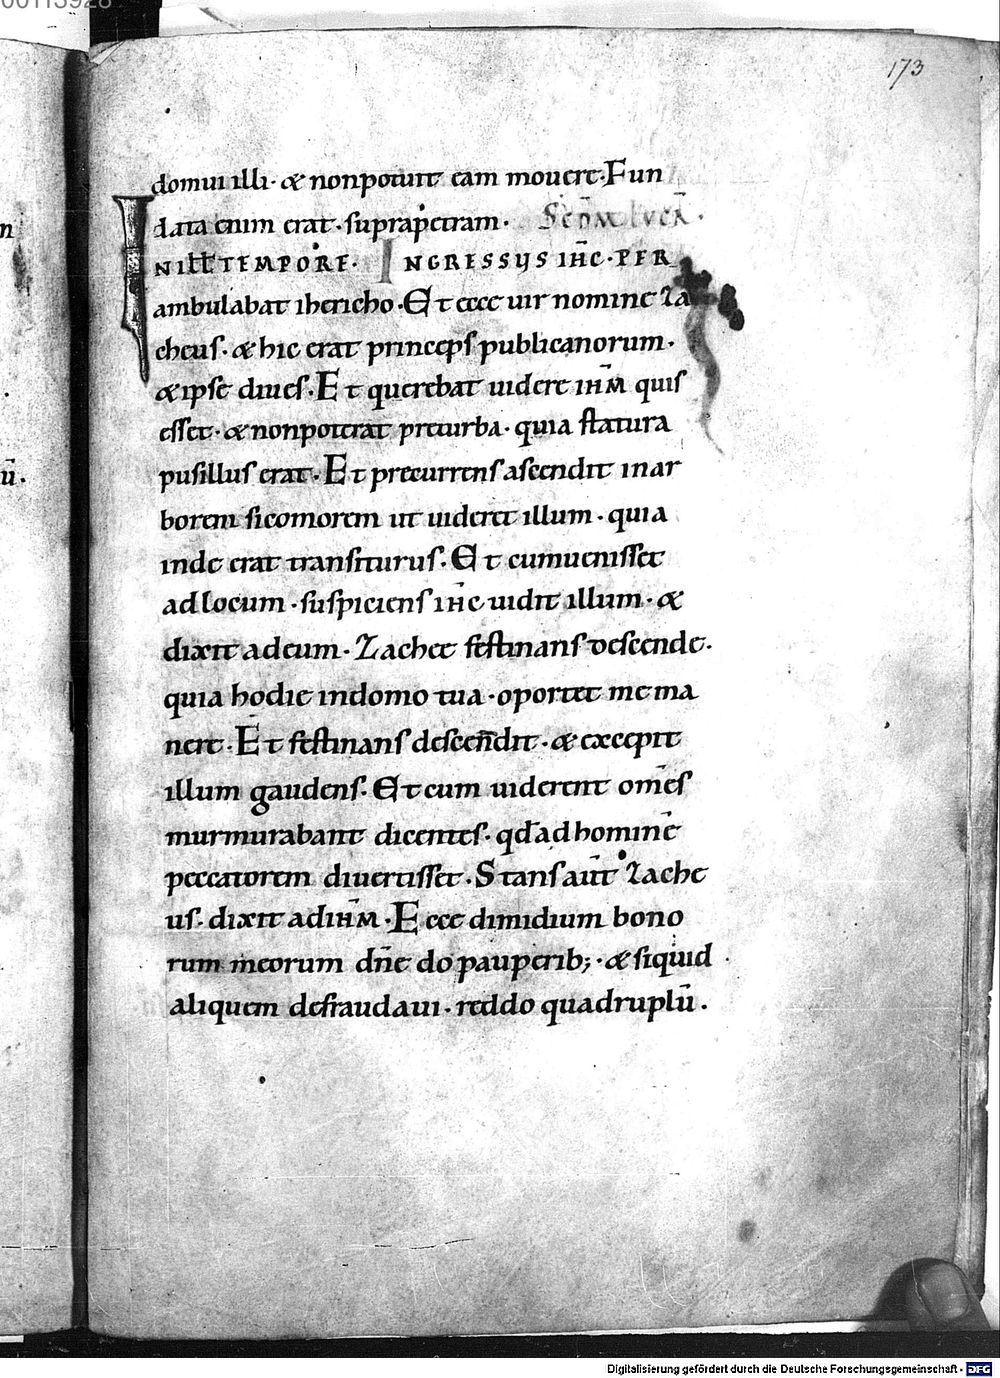 00113928
173
domui illi· & non potuit eam mouere· Fun
data enim erat· supra petram· Scdm lucā·
IN ILL̄ TEMPORE· INGRESSUS IHC̄· PER
ambulabat ihericho· Et ecce uir nomine Za
cheus· & hic erat princeps publicanorum·
& ipse diues· Et querebat uidere ihm̄ quis
esset· & non poterat pre turba· quia statura
pusillus erat· Et precurrens ascendit in ar
borem sicomorem ut uideret illum· quia
inde erat transiturus· Et cum uenisset
ad locum· suspiciens ihc̄ uidit illum· &
dixit ad eum· Zachee festinans descende·
quia hodie in domo tua· oportet me ma
nere· Et festinans descen̄dit· & excepit
illum gaudens· Et cum uiderent om̄es
murmurabant dicentes· qd̄ ad hominē
peccatorem diuertisset· Stans aut̄ Zache
us· dixit ad ihm̄· Ecce dimidium bono
rum meorum dn̄e do pauperib;· & siquid
aliquem defraudaui· reddo quadruplū·
n
ū·
Digitalisierung gefördert durch die Deutsche Forschungsgemeinschaft - DFG